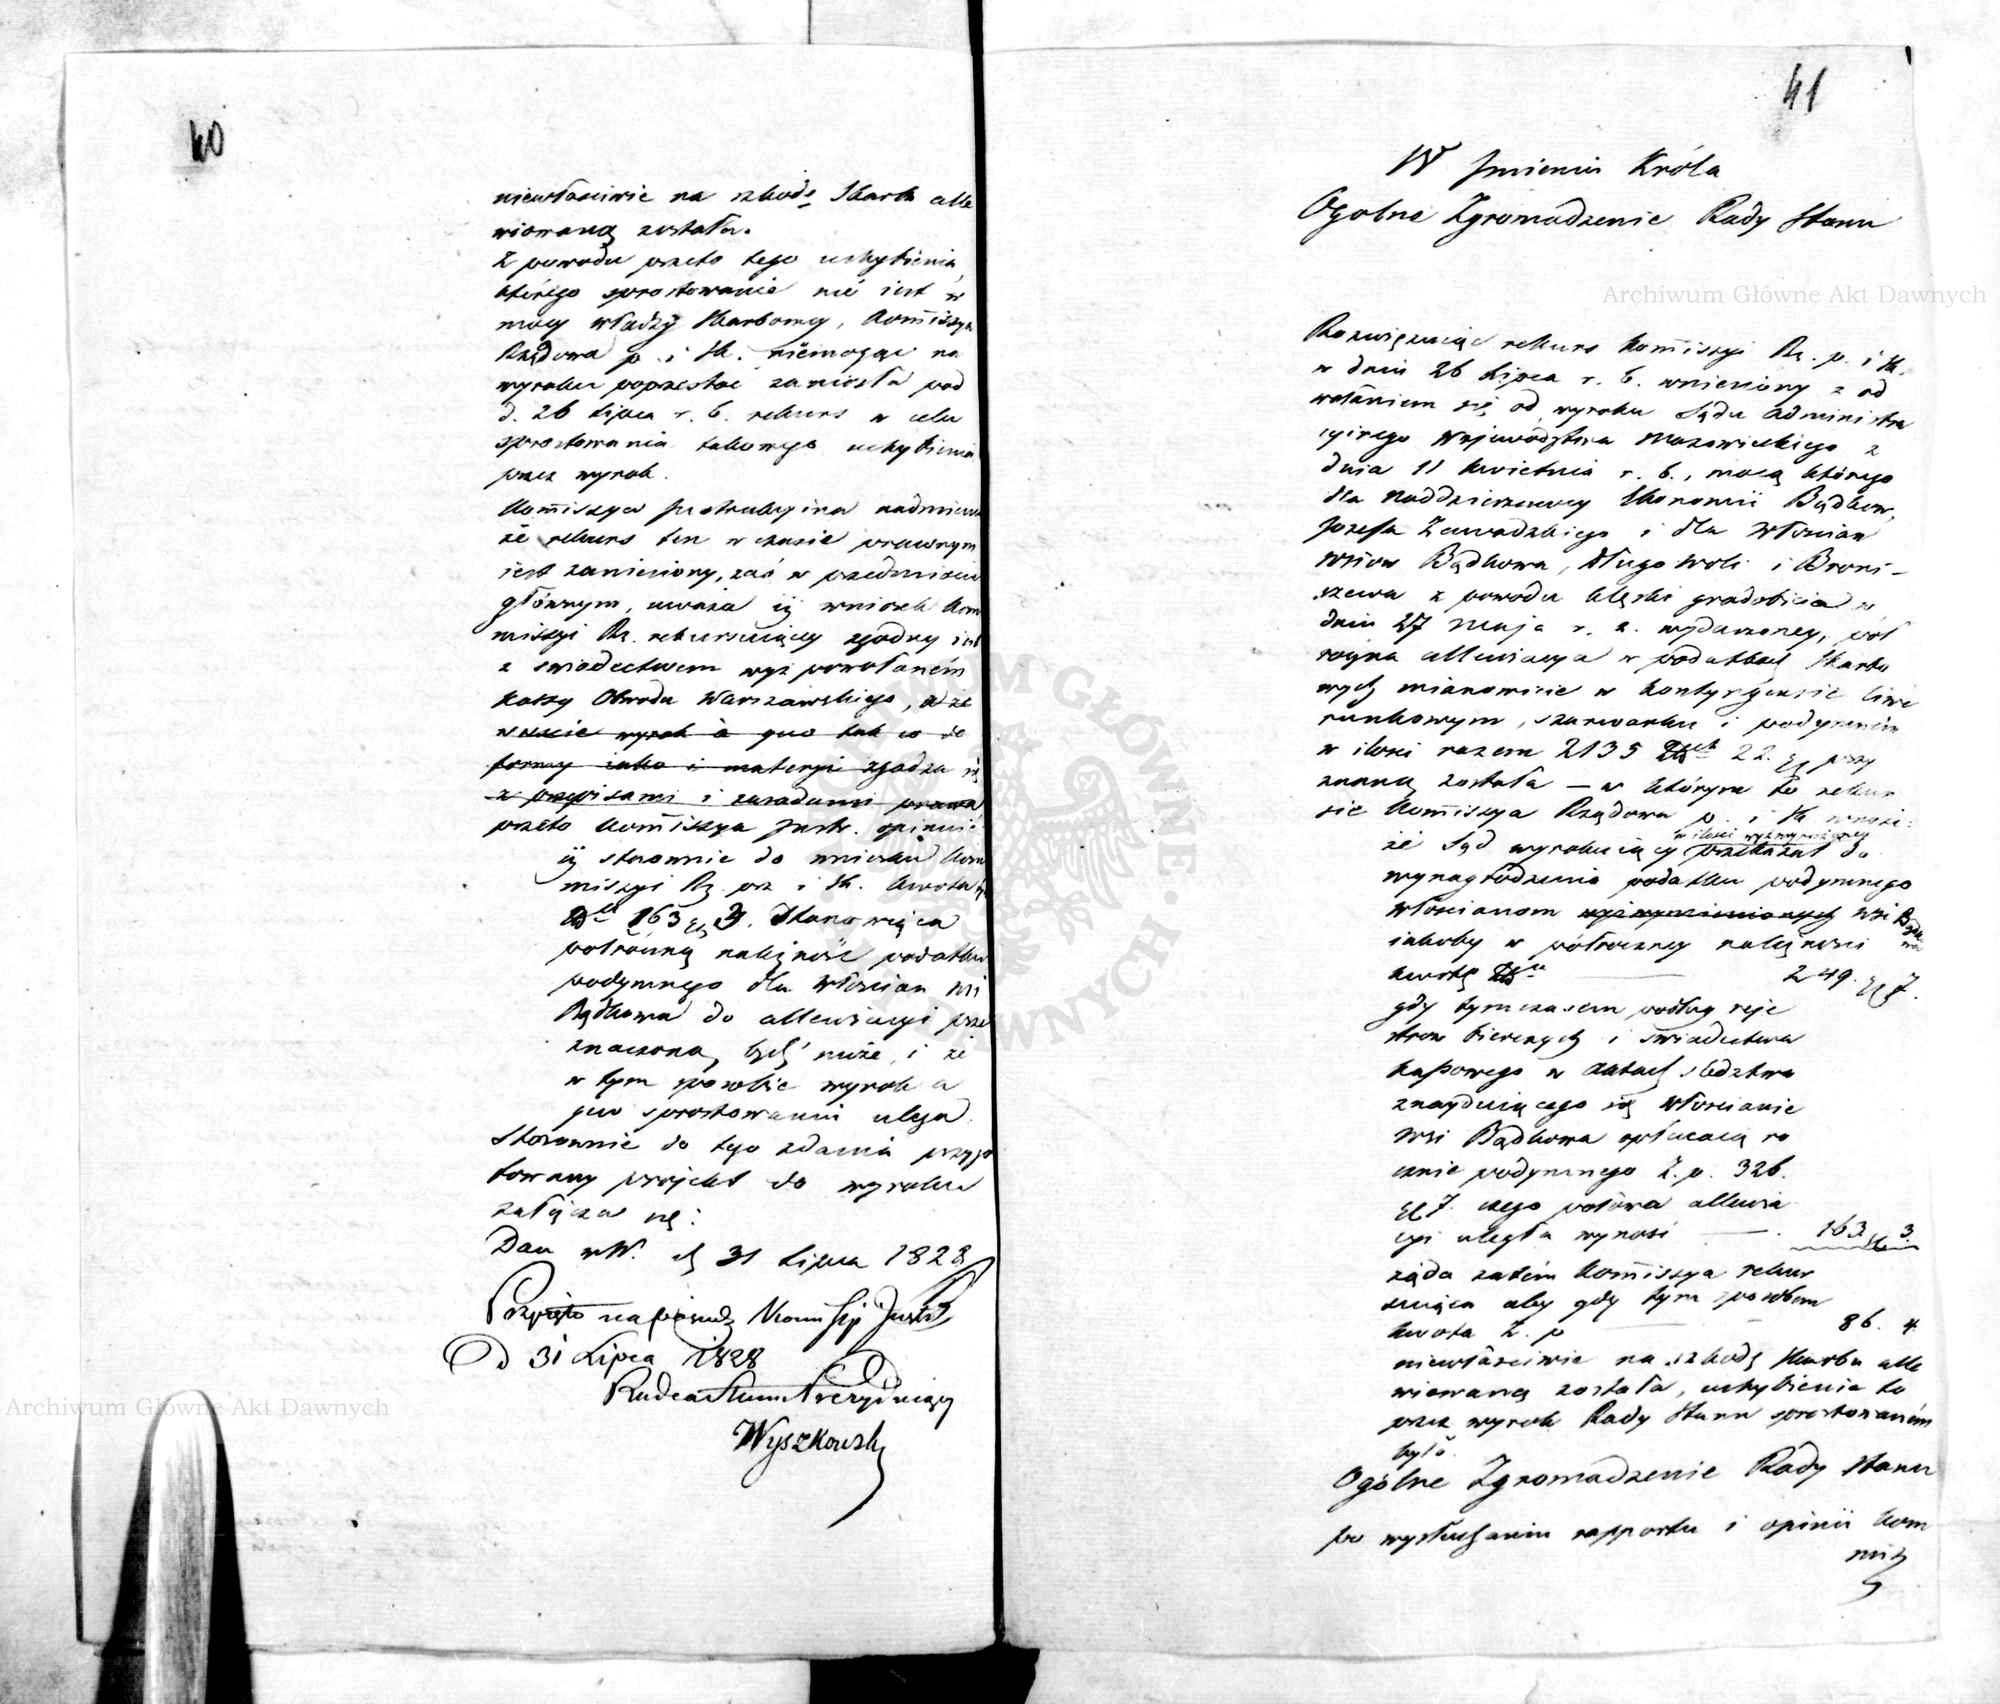 40
niewłaściwie na szkodę Skarbu alle
wiowaną została.
Z powodu przeto tego uchybienia
którego sprostowanie nie iest w
mocy władzy Skarbowey, Kommissya
Rządowa p. i Sk. niemogąc na
wyroku poprzestać zaniosła pod
d. 26 Lipca r. b. rekurs w celu
sprostowania takowego uchybienia
przez wyrok.
Kom̄issya Instrukcyina nadmienia
że rekurs ten w czasie prawnym
iest zaniesiony, zaś w przedmiocie
głównym, uważa iż wniosek Kom
missyi Rz. rekursuiącey zgodny iest
z swiadectwem wyż powołaném
Kassy Obwodu Warszawskiego, a że
w reszcie wyrok a quo tak co do
formy iako i materyi zgadza się
z przepisami i zasadami prawa
przeto Kom̄issya Instr. opiniuie
iż stosownie do wniosku Kom
missyi Rz. prz. i Sk. kwota
163 gr 3. Stanowiąca
połroczną należność podatku
podymnego dla Włościan wsi
Bądkowa do allewiacyi prze
znaczoną bydź może, i że
w tym sposobie wyrok a
quo sprostowaniu ulega.
Stosownie do tego zdania przygo
towany projekt do wyroku
załącza się:
Dan w W. d. 31 Lipca 1828
Przyięto na posiedz. Komissyi Instr.
D 31 Lipca 1828
Radca Stanu Prezyduiący
Wyszkowski
41
W Imieniu Króla
Ogolne Zgromadzenie Rady Stanu
Rozwiązuiąc rekurs Kom̄issyi Rz. p. i Sk.
w dniu 26 Lipca r. b. wniesiony z od
wołaniem się od wyroku Sądu Administra
cyinego Województwa Mazowieckiego z
dnia 11 Kwietnia r. b., mocą którego
dla Naddzierżawcy Ekonomii Bądków,
Józefa Zawadzkiego i dla Włoscian
wsiow Bądkowa, Długowoli i Broni-
szewa z powodu klęski gradobicia w
dniu 27 Maja r. z. wydarzoney, poł
roczna allewiacya w podatkach Skarbo
wych mianowicie w kontyngensie liwe
runkowym, szarwarku i podymném
w ilości razem 2135 22. gr przy
znaną została — w którym to rekur
sie Kom̄issya Rządowa p. i Sk. wnosi:
że Sąd wyrokuiący w ilości przekazał do
wynagrodzenia podatku podymnego
Włościanom wyż wymienionych wsi Bądkowa
iakoby w półroczney należności
kwotę — 249. gr 7.
gdy tymczasem podług reje
strow bierczych i swiadectwa
kassowego w aktach sledztwa
znayduiącego się Włościanie
wsi Bądkowa opłacaią ro
cznie podymnego Z. p. 326.
gr 7. czego połowa allewia
cyi uległa wynosi — 163 gr 3.
żąda zatém Kom̄issya rekur
suiąca aby gdy tym sposobem
kwota Z. p — 86. 4
niewłaściwie na szkodę Skarbu alle
wiowaną została, uchybienie to
przez wyrok Rady Stanu sprostowaném
było.
Ogólne Zgromadzenie Rady Stanu
po wysłuchaniu rapportu i opinii Kom
mis
Archiwum Główne Akt Dawnych
Archiwum Główne Akt Dawnych
ARCHIWUM GŁÓWNE AKT DAWNYCH